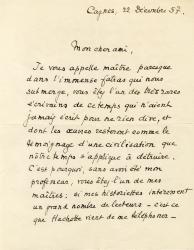 Cagnes, 22 Décembre 57.
Mon cher ami,
Je vous appelle maître parce que
dans l'immense fatras qui nous
submerge, vous êtes l'un des très rares
écrivains de ce temps qui n'aient
jamais écrit pour ne rien dire, et
dont les œuvres resteront comme le
témoignage d'une civilisation que
notre temps s'applique à détruire.
C'est pourquoi, sans avoir été mon
professeur, vous êtes l'un de mes
maîtres ; si mes historiettes intéressent
un grand nombre de lecteurs - c'est ce
que Hachette vient de me téléphoner -